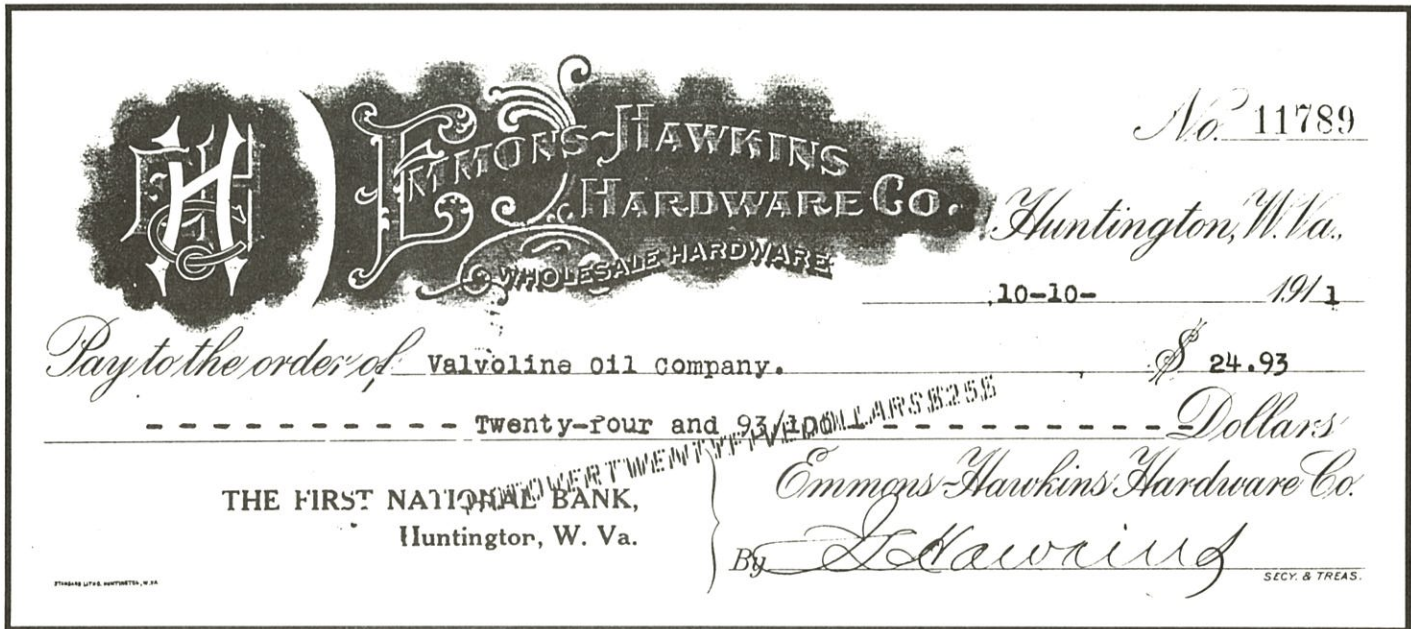 No. 11789
EMMONS-HAWKINS
HARDWARE CO.
WHOLESALE HARDWARE
EHHCO
Huntington, W. Va.,
10-10- 1911
Pay to the order of Valvoline Oil Company. $ 24.93
- - - - - - - - - - - - Twenty-four and 93/100 - - - - - - - - - - - - Dollars
NOT OVER TWENTY FIVE DOLLARS $25$
THE FIRST NATIONAL BANK,
Huntington, W. Va.
Emmons-Hawkins Hardware Co.
By Hawkins
SECY. & TREAS.
STANDARD LITHO. HUNTINGTON, W. VA.